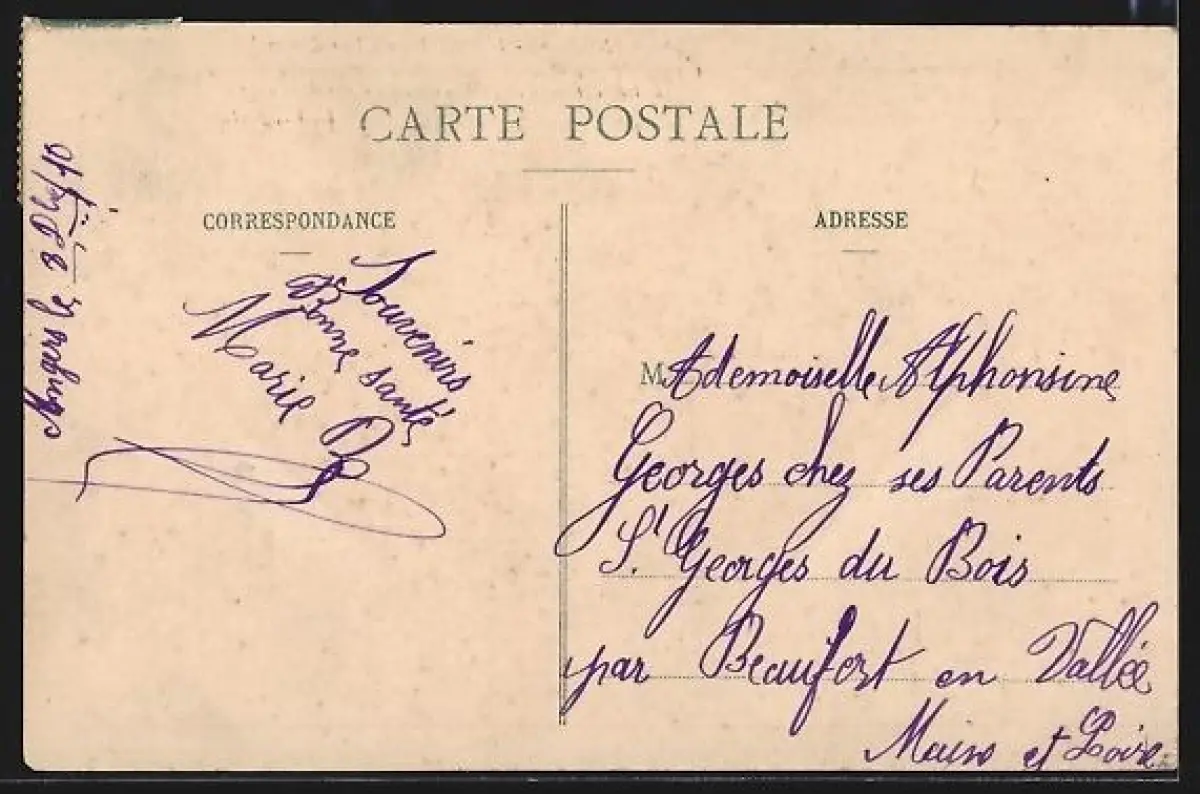 CARTE POSTALE
CORRESPONDANCE
Angers le 8
Souvenirs
Bonne santé
Marie B
ADRESSE
Mademoiselle Alphonsine
Georges chez ses Parents
St Georges du Bois
par Beaufort en Vallée
Maine et Loire